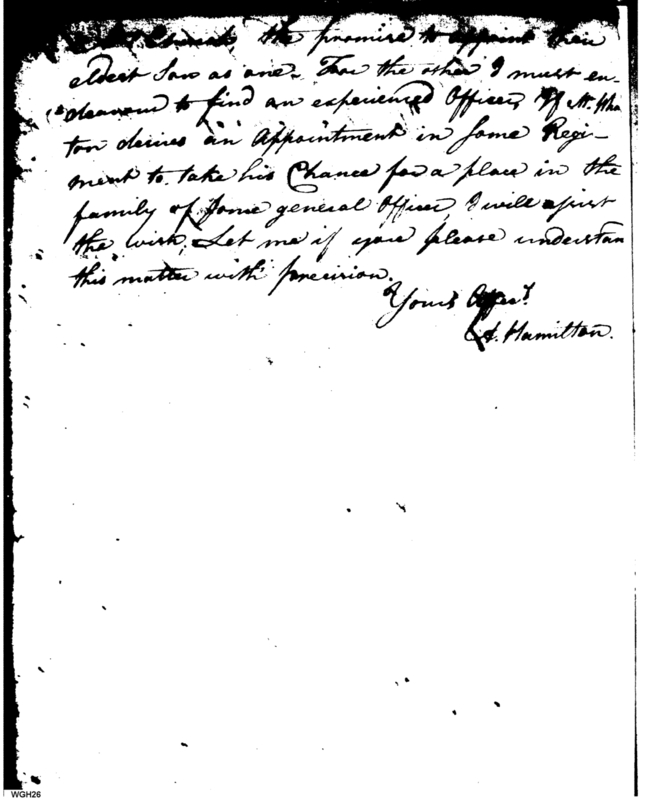 the promise to appoint their
eldest Son as one. For the other I must en-
deavour to find an experienced Officer. If Mr. Wha
ton desires an Appointment in some Regi-
ment to take his Chance for a place in the
family of some general Officer, I will assist
the wish. Let me if you please understan
this matter with precision.
Yours Affecy.
A. Hamilton.
WGH26